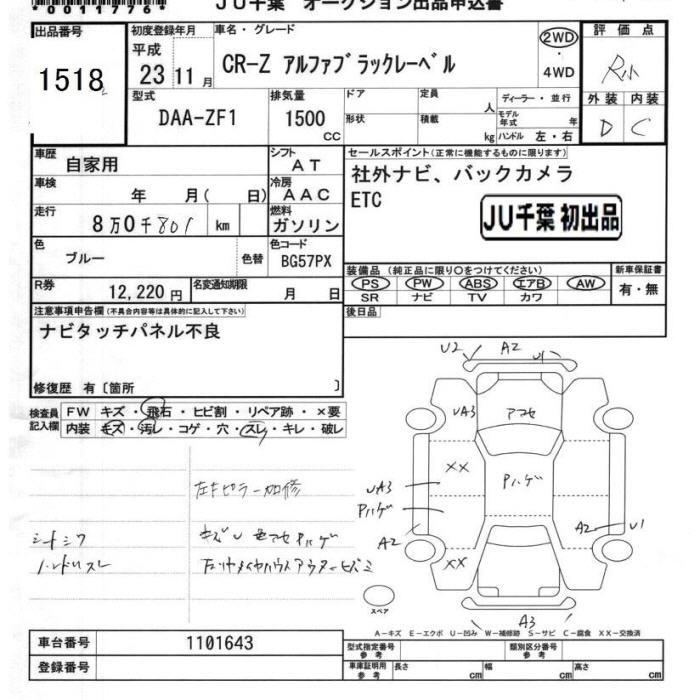 *00117776*
JU千葉 オークション出品申込書
出品番号
1518
初度登録年月
平成
23 11月
車名・グレード
CR-Z アルファブラックレーベル
2WD
・
4WD
評価点
R小
外装 内装
D C
型式
DAA-ZF1
排気量
1500
cc
ドア
形状
定員
人
積載
kg
ディーラー・並行
モデル年式 年
ハンドル 左・右
車歴
自家用
シフト
AT
車検
年 月( 日)
冷房
AAC
走行
8万0千801 km
燃料
ガソリン
色
ブルー
色替
色コード
BG57PX
R券
12,220円
名変通知期限
月 日
セールスポイント(正常に機能するものに限ります)
社外ナビ、バックカメラ
ETC
JU千葉 初出品
装備品(純正品に限り○をつけてください)
PS PW ABS エアB AW
SR ナビ TV カワ
新車保証書
有・無
後日品
注意事項申告欄(不具合内容等は具体的に記入して下さい)
ナビタッチパネル不良
修復歴 有〔箇所 〕
検査員
記入欄
FW キズ・飛石・ヒビ割・リペア跡・×要
内装 キズ・汚レ・コゲ・穴・スレ・キレ・破レ
U2 A2 U1
UA3 アマセ
XX Pハゲ
UA3
Pハゲ
A2 A2 U1
XX
A3
スペア
左右ピラー加修
シートシワ
ハンドルスレ
キズU 色アセ Pハゲ
A-キズ E-エクボ U-凹み W-補修跡 S-サビ C-腐食 XX-交換済
車台番号
1101643
登録番号
型式指定番号
参考
類別区分番号
参考
車庫証明用
参考
長さ cm
幅 cm
高さ cm